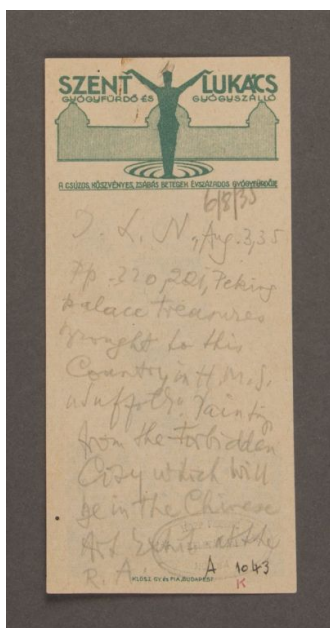 SZENT LUKÁCS
GYÓGYFÜRDŐ ÉS GYÓGYSZÁLLÓ
A CSÚZOS, KÖSZVÉNYES, ISIÁSOS BETEGEK ÉVSZÁZADOS GYÓGYFÜRDŐJE
6/8/35
I. L. N., Aug. 3, 35
Pp. 220, 221, Peking
palace treasures
brought to this
Country in H.M.S.
"Suffolk". Painting
from the Forbidden
City which will
be in the Chinese
Art Exhib. at the
R. A.
KLÖSZ GY. ÉS FIA, BUDAPEST.
A 1043
K